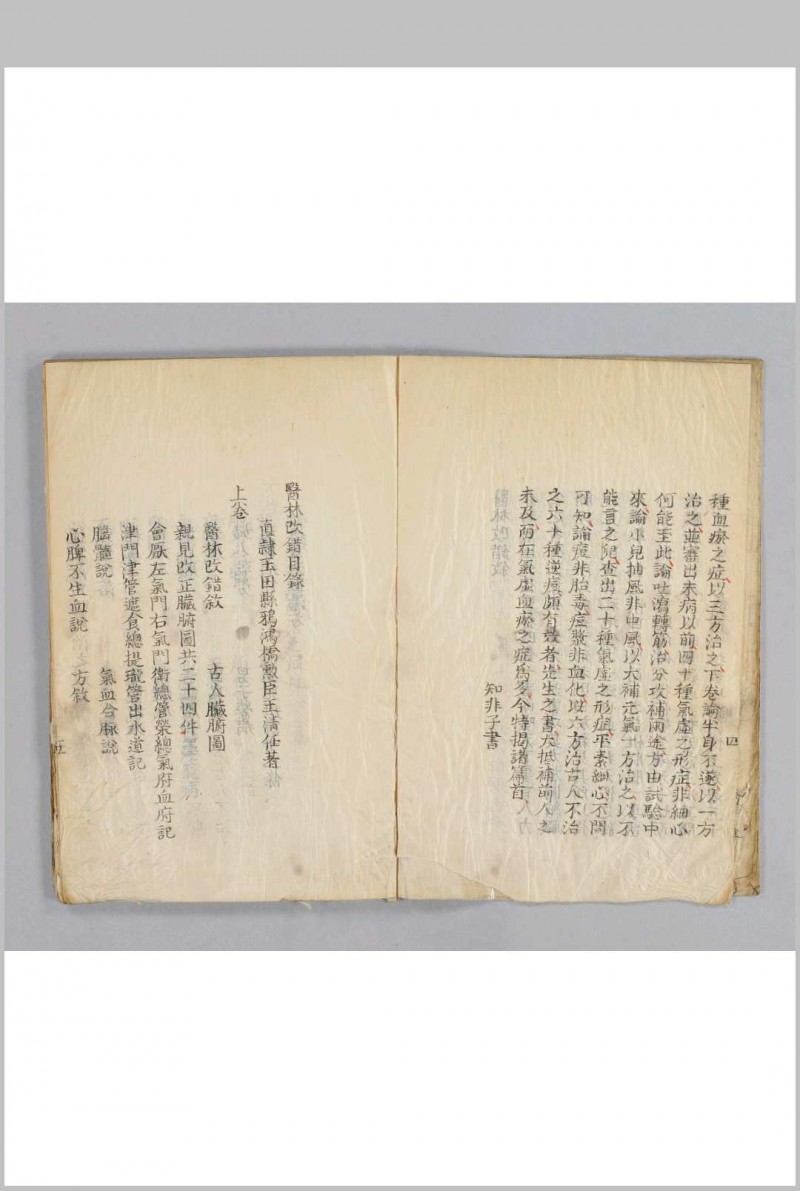 四
種血瘀之症以三方治之下卷論半身不遂以一方
治之並審出未病以前四十種氣虛之形症非細心
何能至此論吐瀉轉筋治分攻補兩途方由試驗中
來論小兒抽風非中風以大補元氣一方治之以不
能言之兒查出二十種氣虛之形症平素細心不問
可知論痘非胎毒痘漿非血化以六方治古人不治
之六十種逆痘頗有效者先生之書大抵補前人之
未及而在氣虛血瘀之症為多今特揭諸篇首
知非子書
醫林改錯目錄
直隸玉田縣鴉鴻橋勲臣王清任著
上卷
醫林改錯敘 古人臟腑圖
親見改正臟腑圖共二十四件
會厭左氣門右氣門衛總管榮總氣府血府記
津門津管遮食總提瓏管出水道記
腦髓說 氣血合脉說
心脾不生血說 方敘
五